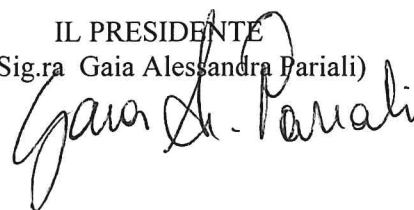 IL PRESIDENTE
Sig.ra Gaia Alessandra Pariali)
Gaia A. Pariali